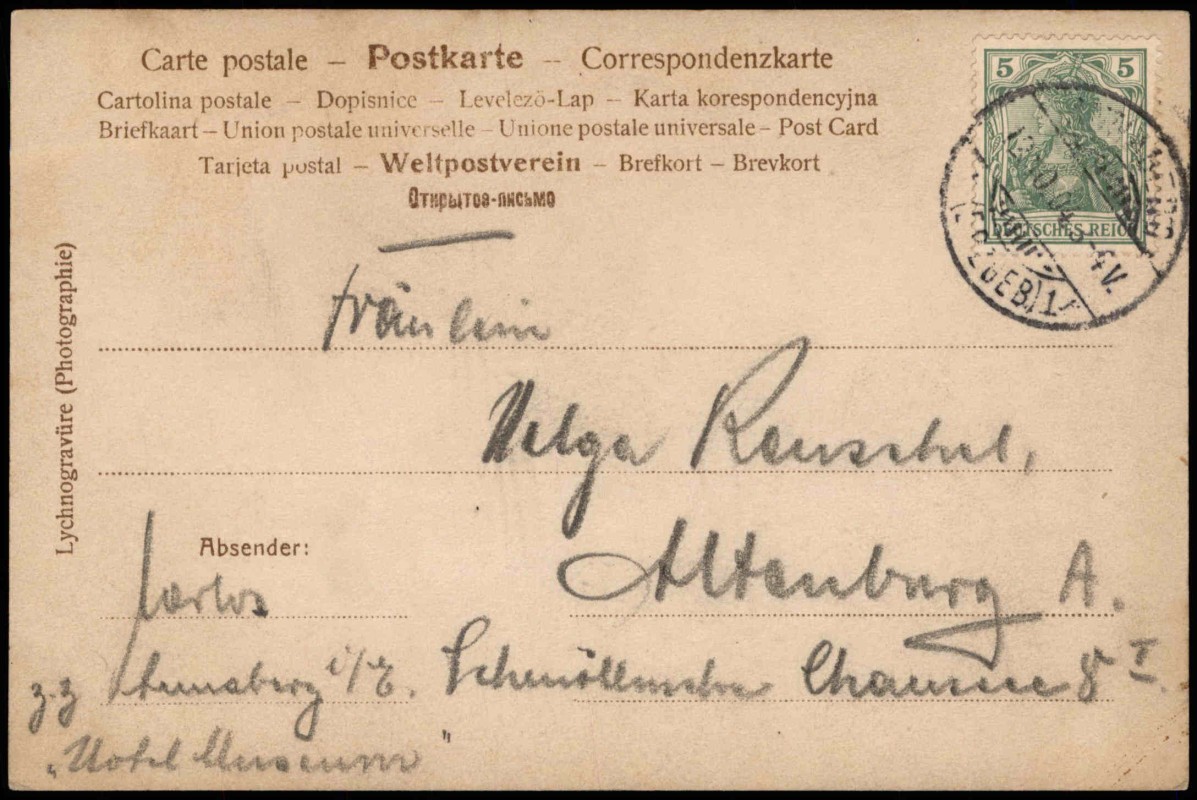 Carte postale – Postkarte – Correspondenzkarte
Cartolina postale – Dopisnice – Levelező-Lap – Karta korespondencyjna
Briefkaart – Union postale universelle – Unione postale universale – Post Card
Tarjeta postal – Weltpostverein – Brefkort – Brevkort
Открытое-письмо
5 5
DEUTSCHES REICH
GEB) 1
Lychnogravüre (Photographie)
Fräulein
Helga Reuschel,
Altenburg A.
Schmöllnsche Chaussee 8 I.
Absender:
Carlos
z. Z. Annaberg i/E.
„Hotel Museum"